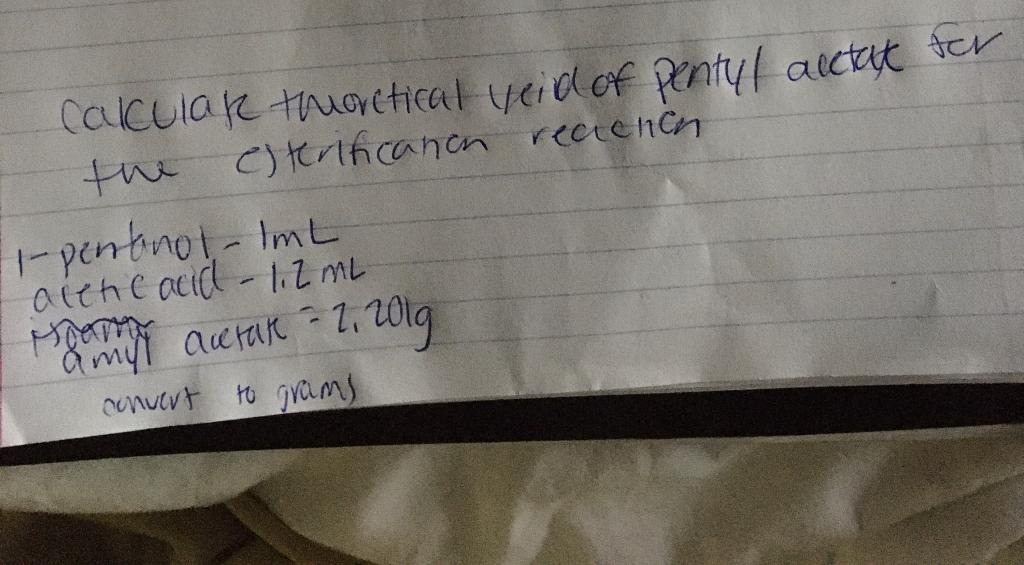 Calculate theoretical yeild of pentyl acetate for
the esterification reaction
1-pentanol - 1mL
acetic acid - 1.2 mL
amyl acetate = 2.201g
convert to grams